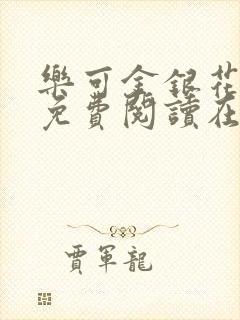 樂可金銀花
免費閱讀在
賈軍龍